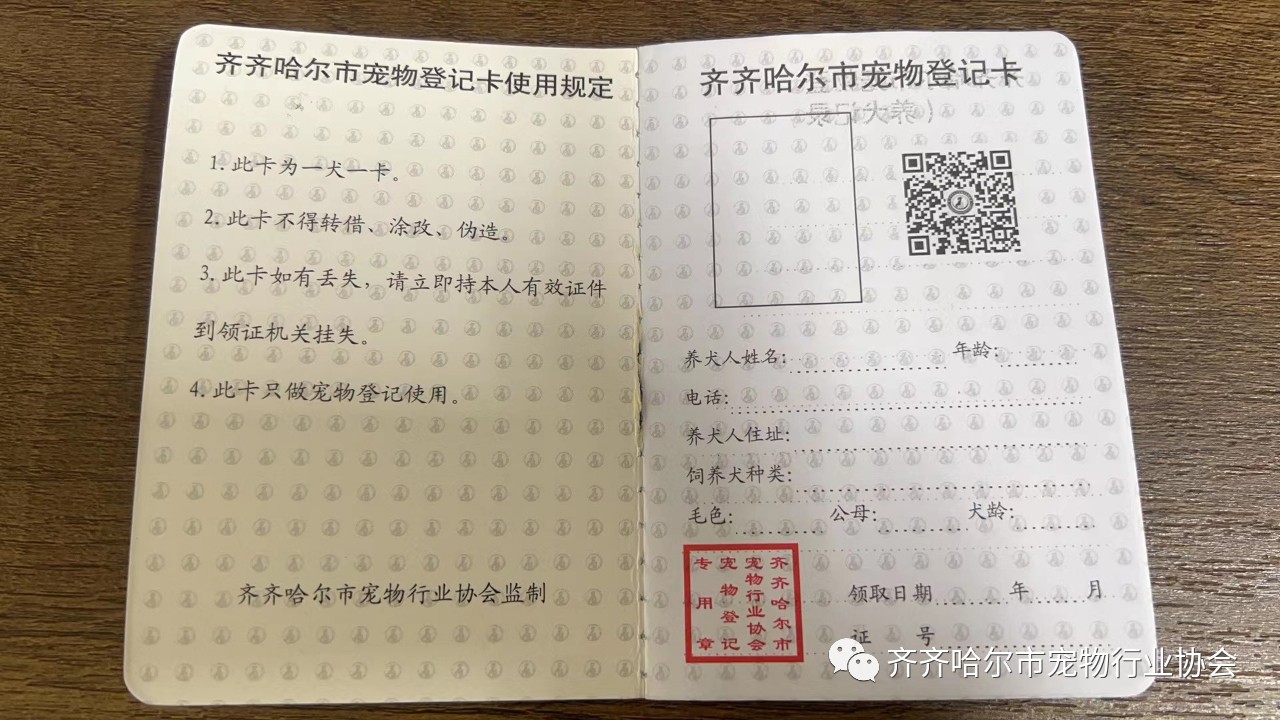 齐齐哈尔市宠物登记卡使用规定
1. 此卡为一犬一卡。
2. 此卡不得转借、涂改、伪造。
3. 此卡如有丢失，请立即持本人有效证件
到领证机关挂失。
4. 此卡只做宠物登记使用。
齐齐哈尔市宠物行业协会监制
齐齐哈尔市宠物登记卡
养犬人姓名: 年龄:
电话:
养犬人住址:
饲养犬种类:
毛色: 公母: 犬龄:
齐齐哈尔市
宠物行业协会
宠物登记
专用章
领取日期 年 月
证 号
齐齐哈尔市宠物行业协会